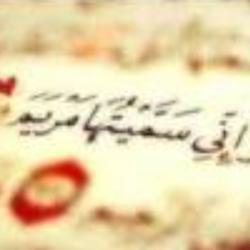 انّي سَمَّيتُهَا مَريَمَ